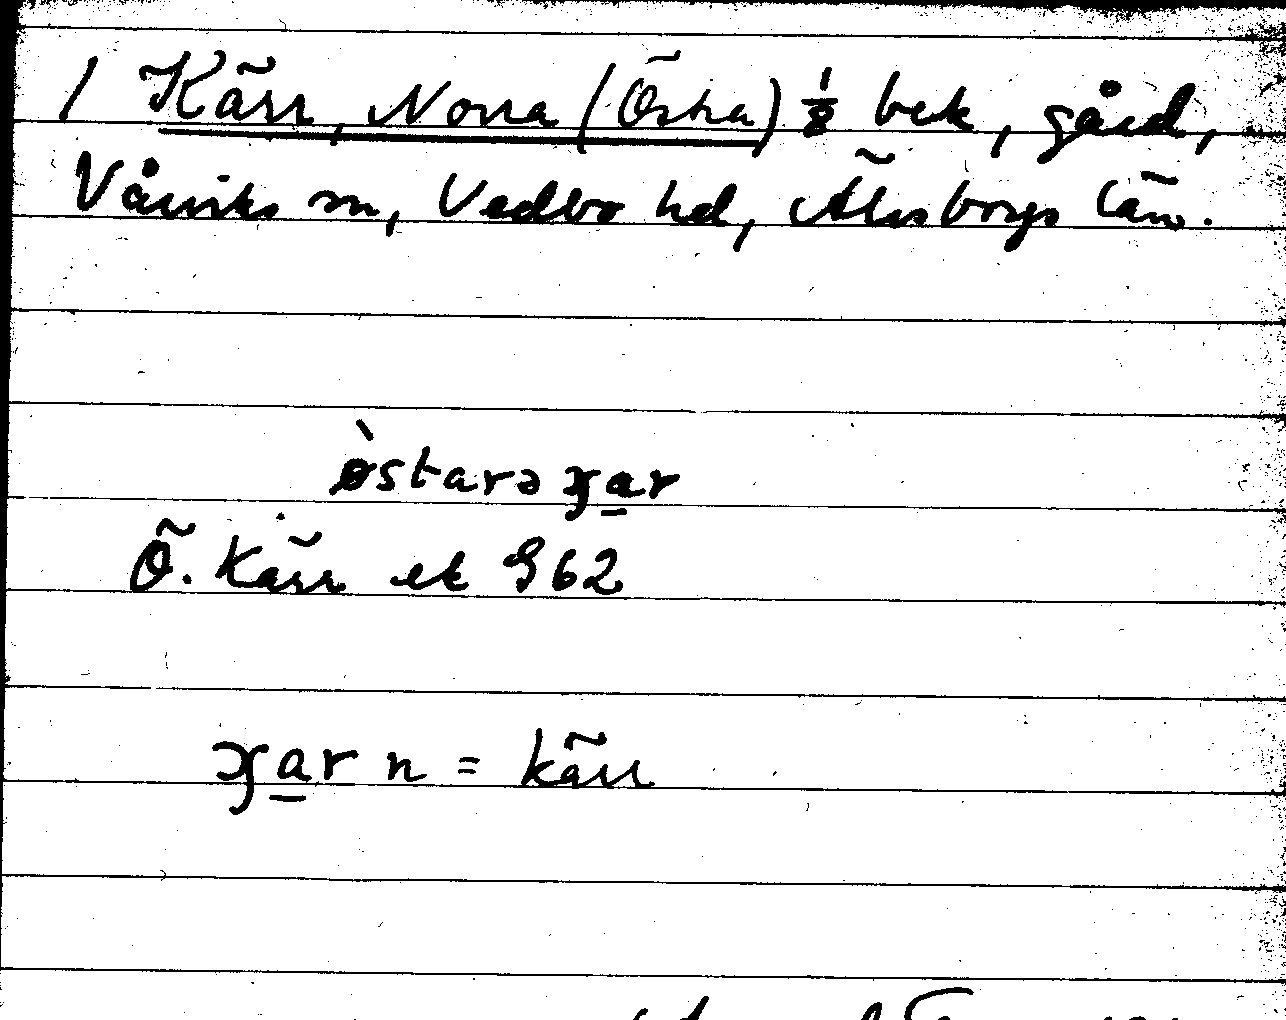 1 Kärr, Norra (Östra) 1/8 bek, gård,
Vårviks sn, Vedbo hd, Älvsborgs län.
ø̀starə χa̱r
Ö. Kärr ek G62
χa̱r n = kärr